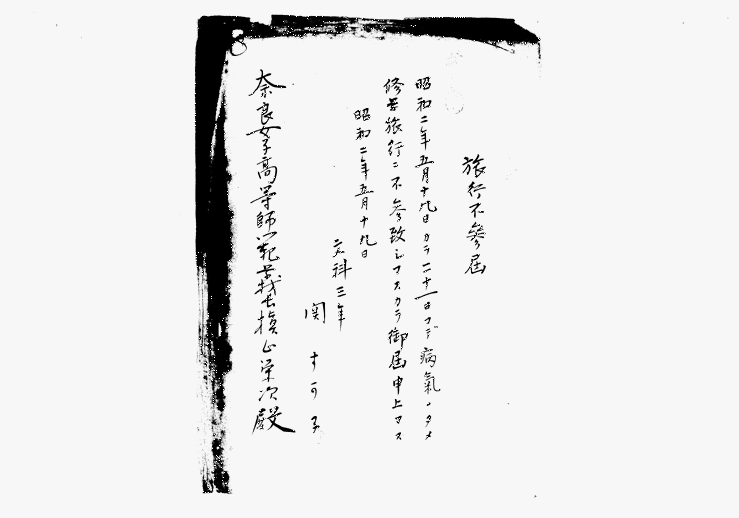 旅行不參届
昭和二年五月十九日カラ二十一日マデ病氣ノタメ
修学旅行ニ不參致シマスカラ御届申上マス
昭和二年五月十九日
文科三年
関
奈良女子高等師範学校長槇山栄次殿